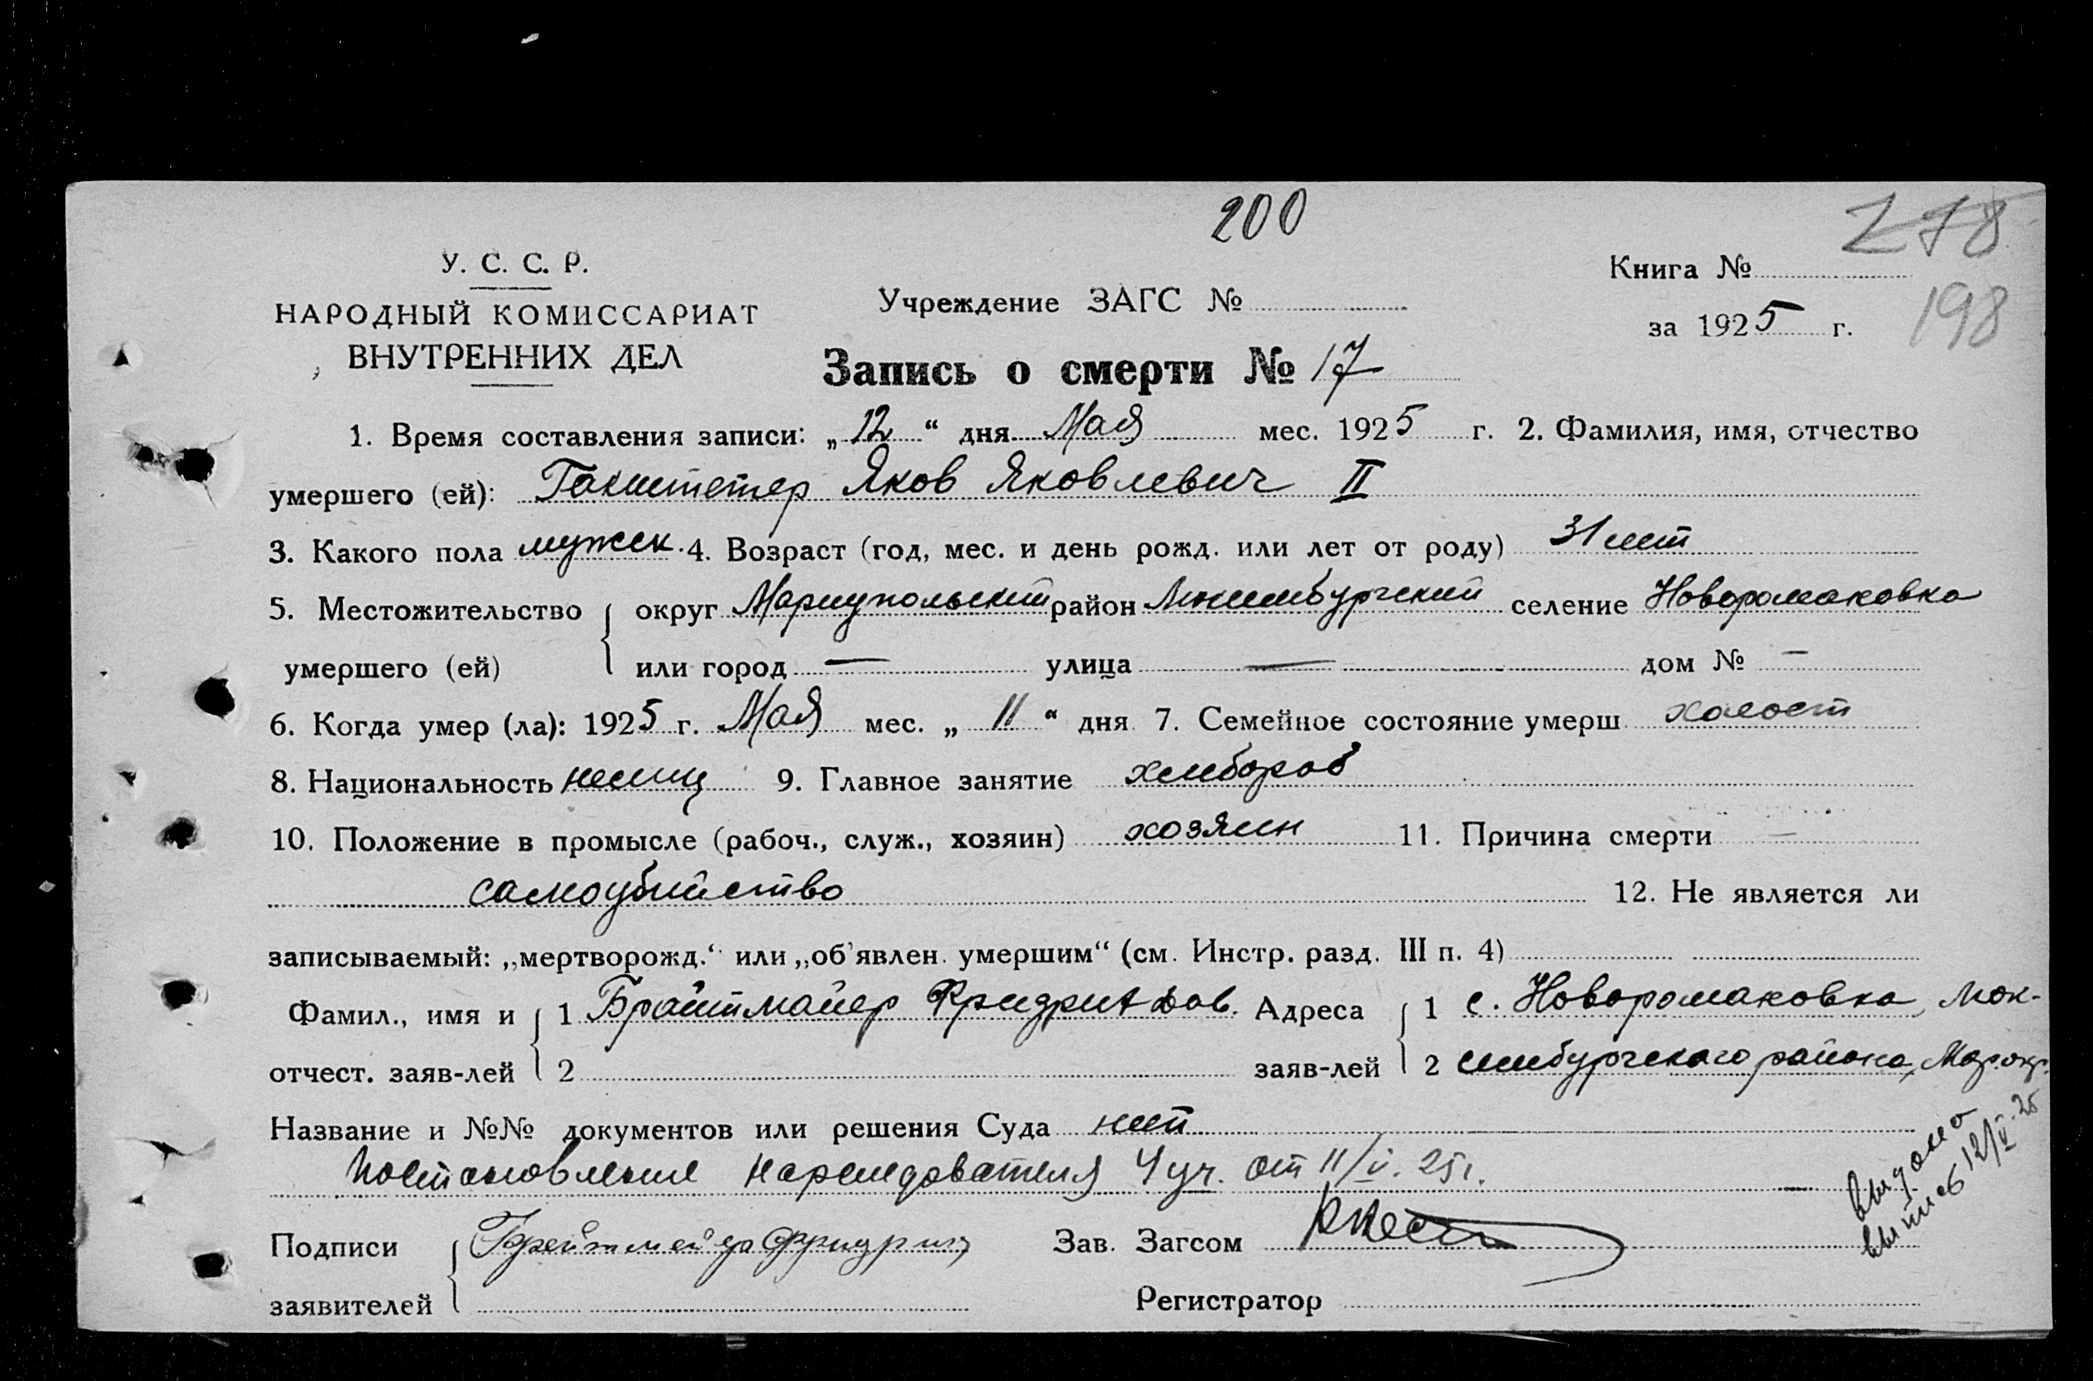 200
278
У. С. С. Р.
Книга №
НАРОДНЫЙ КОМИССАРИАТ
Учреждение ЗАГС №
за 1925 г.
198
ВНУТРЕННИХ ДЕЛ
Запись о смерти № 17
1. Время составления записи: „12“ дня Мая мес. 1925 г. 2. Фамилия, имя, отчество
умершего (ей): Гакштетер Яков Яковлевич II
3. Какого пола мужск. 4. Возраст (год, мес. и день рожд. или лет от роду) 31 лет
5. Местожительство округ Мариупольский район Люксембургский селение Новоромановка
умершего (ей) или город — улица — дом № —
6. Когда умер (ла): 1925 г. Мая мес. „11“ дня 7. Семейное состояние умерш холост
8. Национальность немец 9. Главное занятие хлебороб
10. Положение в промысле (рабоч., служ., хозяин) хозяин 11. Причина смерти
самоубийство 12. Не является ли
записываемый: „мертворожд.“ или „об'явлен. умершим“ (см. Инстр. разд. III п. 4)
Фамил., имя и 1 Брайтмайер Фридрих Дав. Адреса 1 с. Новоромановка, Люк-
отчест. заяв-лей 2 заяв-лей 2 сембургского района, Мар. окр.
Название и №№ документов или решения Суда нет
Постановление нарследователя 4 уч. от 11/V. 25 г.
выдана
выпись 12/V-25
Подписи Зав. Загсом
заявителей Регистратор